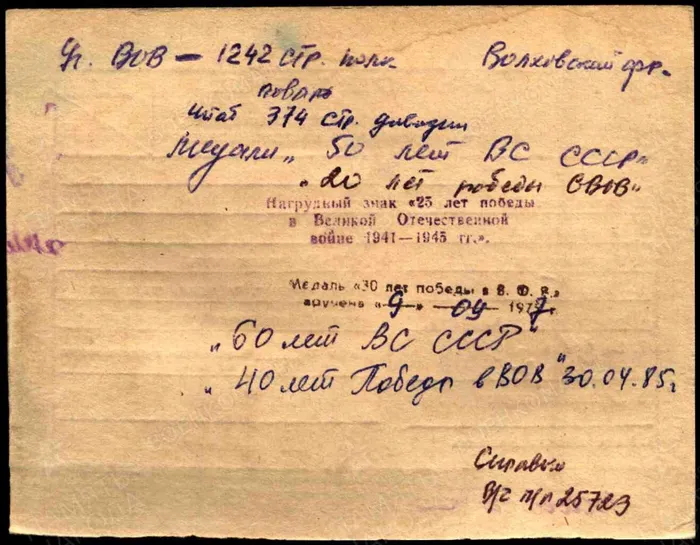 Уч. ВОВ – 1242 стр. полк Волховский фр.
повар
штаб 374 стр. дивизии
Медали „50 лет ВС СССР"
„20 лет победы в ВОВ"
Нагрудный знак «25 лет победы
в Великой Отечественной
войне 1941—1945 гг.».
Медаль «30 лет победы в В. О. В.»
вручена «9» 09 1977 г.
„60 лет ВС СССР"
„40 лет Победы в ВОВ" 30.04.85 г
Справка
В/ч п/п 25723